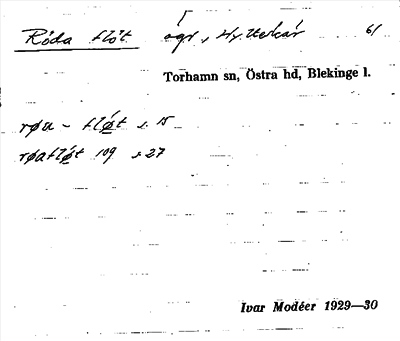 Röda flöt ögr, Hyttekär 61
Torhamn sn, Östra hd, Blekinge l.
røu - fløt s. 15
røafløt 109 s 27
Ivar Modéer 1929—30